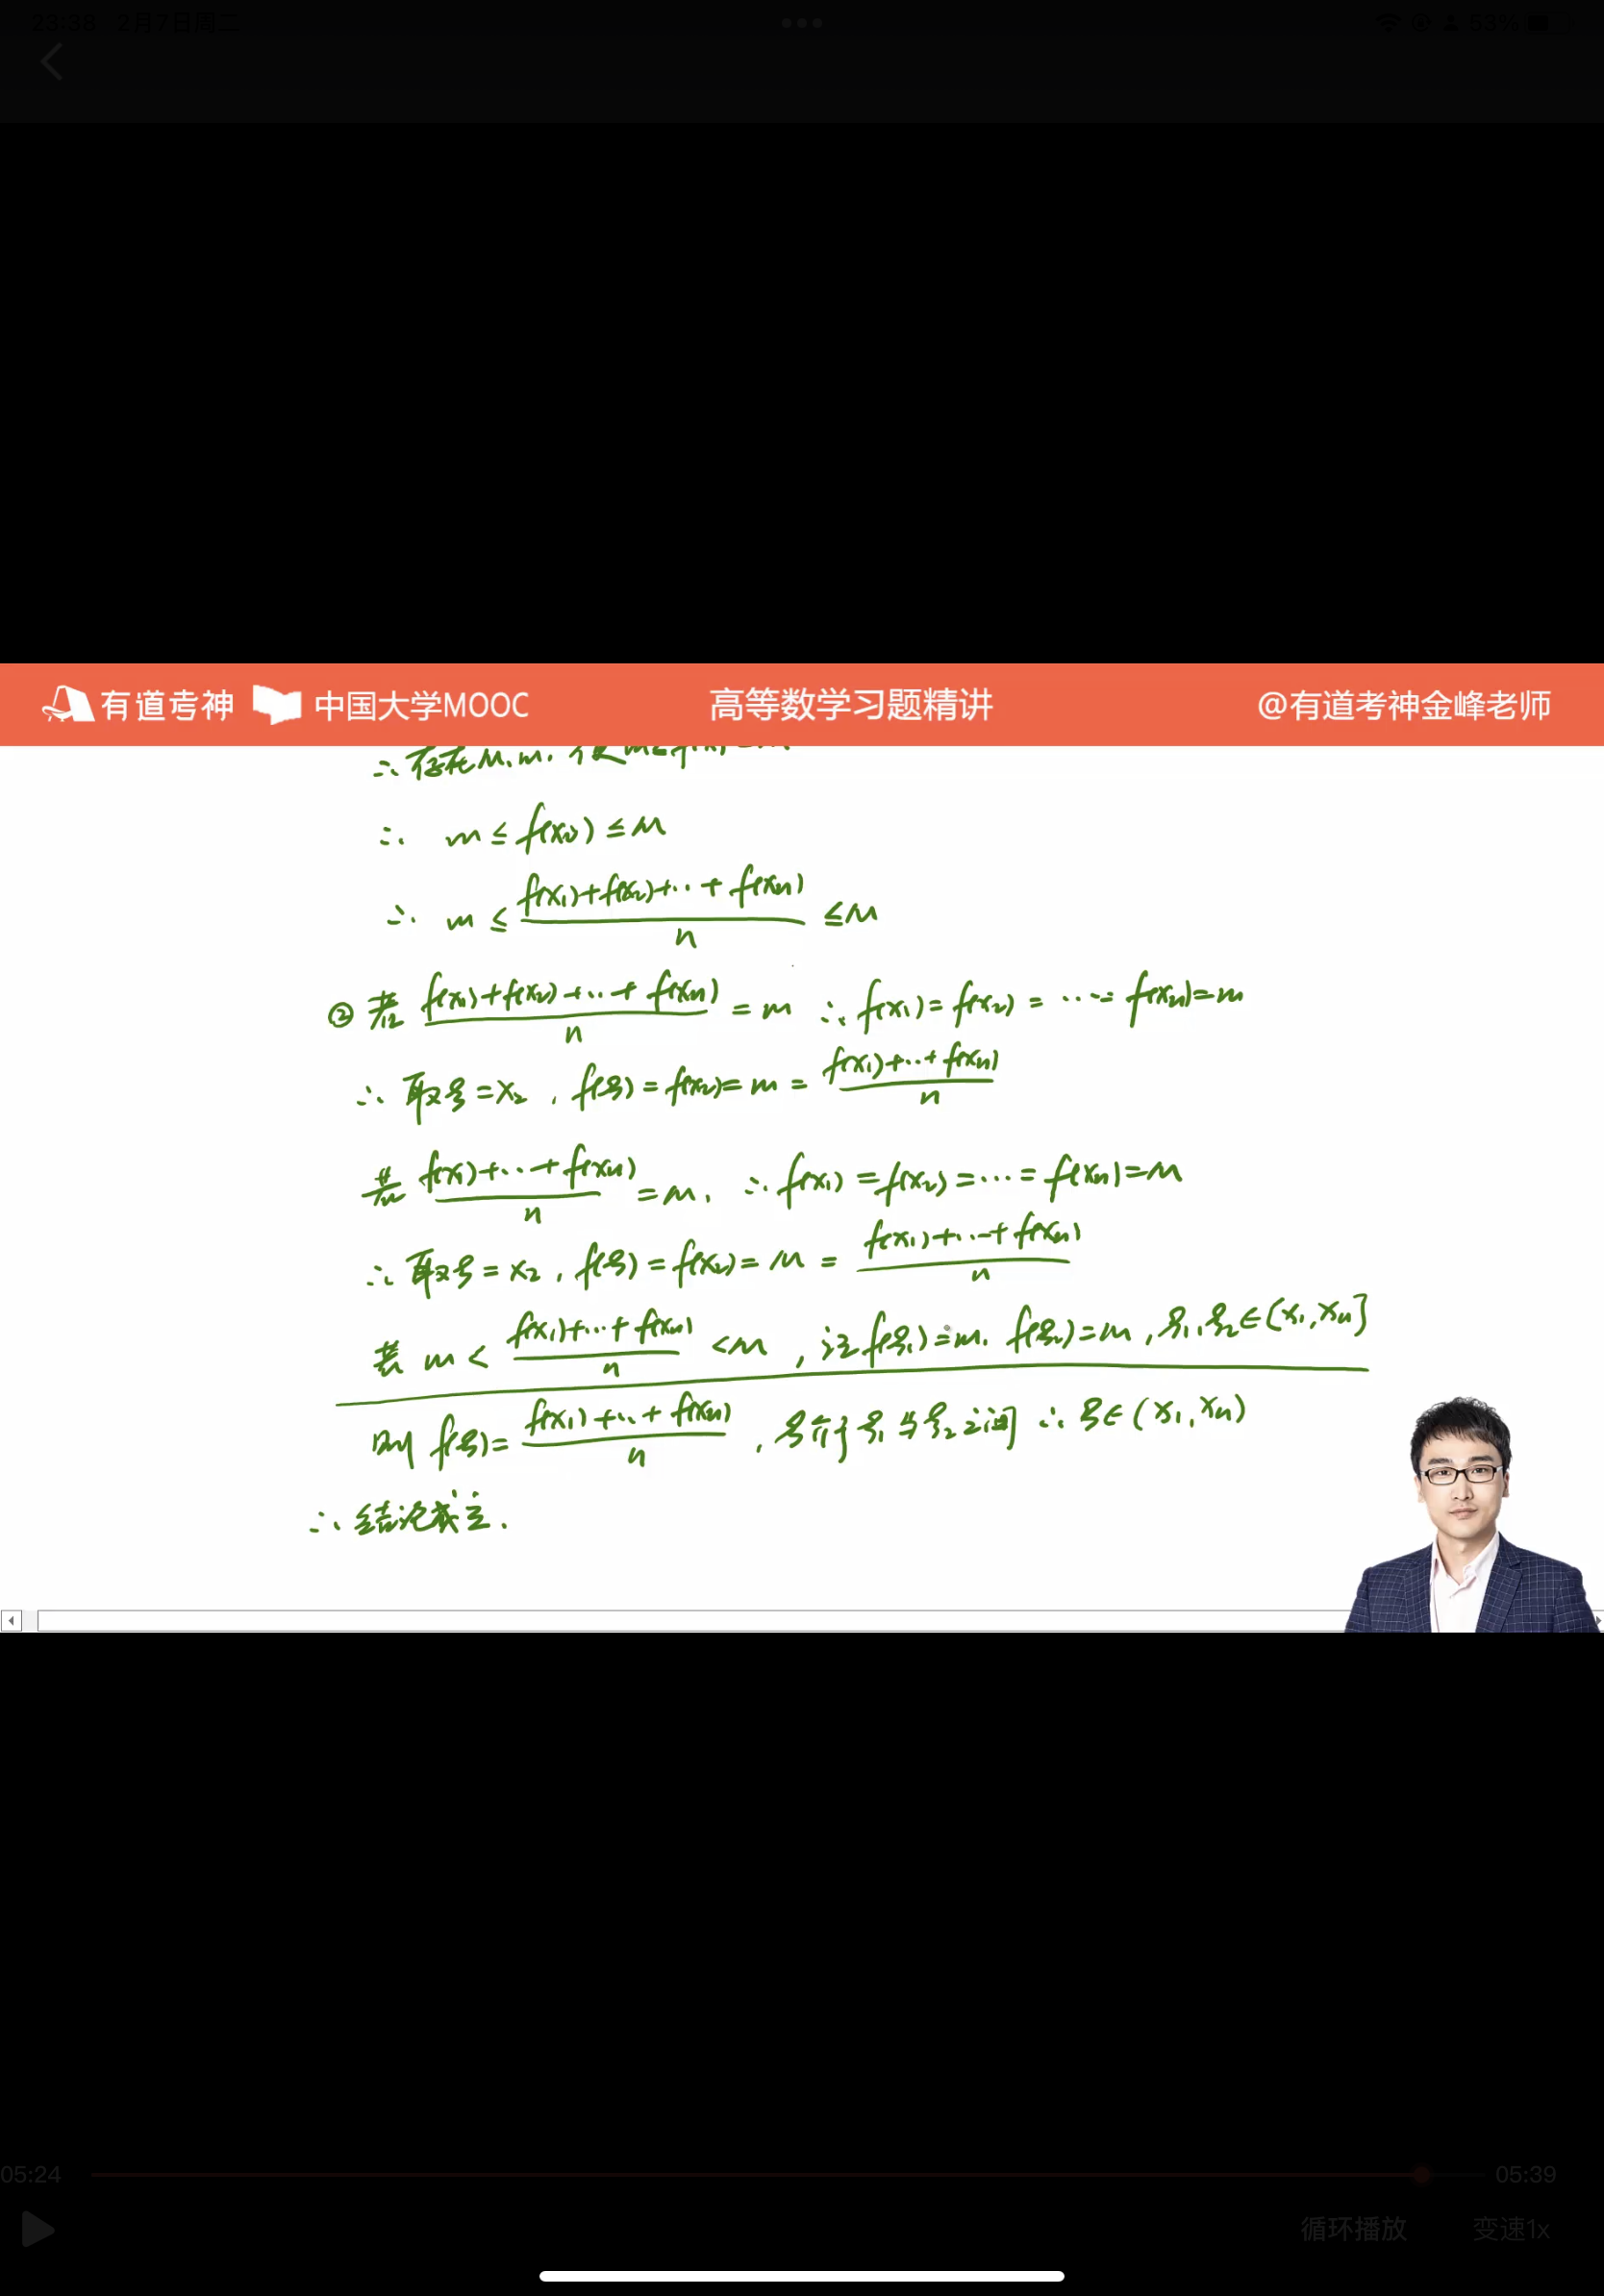 23:38 2月7日周二
53%
有道考神 中国大学MOOC 高等数学习题精讲 @有道考神金峰老师
∴ 存在M、m, 使m≤f(x)≤M
∴ m ≤ f(xᵢ) ≤ M
∴ m ≤ (f(x₁)+f(x₂)+…+f(xₙ))/n ≤ M
② 若 (f(x₁)+f(x₂)+…+f(xₙ))/n = m ∴ f(x₁) = f(x₂) = …… = f(xₙ) = m
∴ 取ξ = x₂, f(ξ) = f(x₂) = m = (f(x₁)+…+f(xₙ))/n
若 (f(x₁)+…+f(xₙ))/n = M, ∴ f(x₁) = f(x₂) = … = f(xₙ) = M
∴ 取ξ = x₂, f(ξ) = f(x₂) = M = (f(x₁)+…+f(xₙ))/n
若 m < (f(x₁)+…+f(xₙ))/n < M, 记 f(ξ₁) = m. f(ξ₂) = M, ξ₁,ξ₂∈[x₁,xₙ]
则 f(ξ) = (f(x₁)+…+f(xₙ))/n, ξ介于ξ₁与ξ₂之间 ∴ ξ∈(x₁,xₙ)
∴ 结论成立.
05:24 05:39
循环播放 变速1x